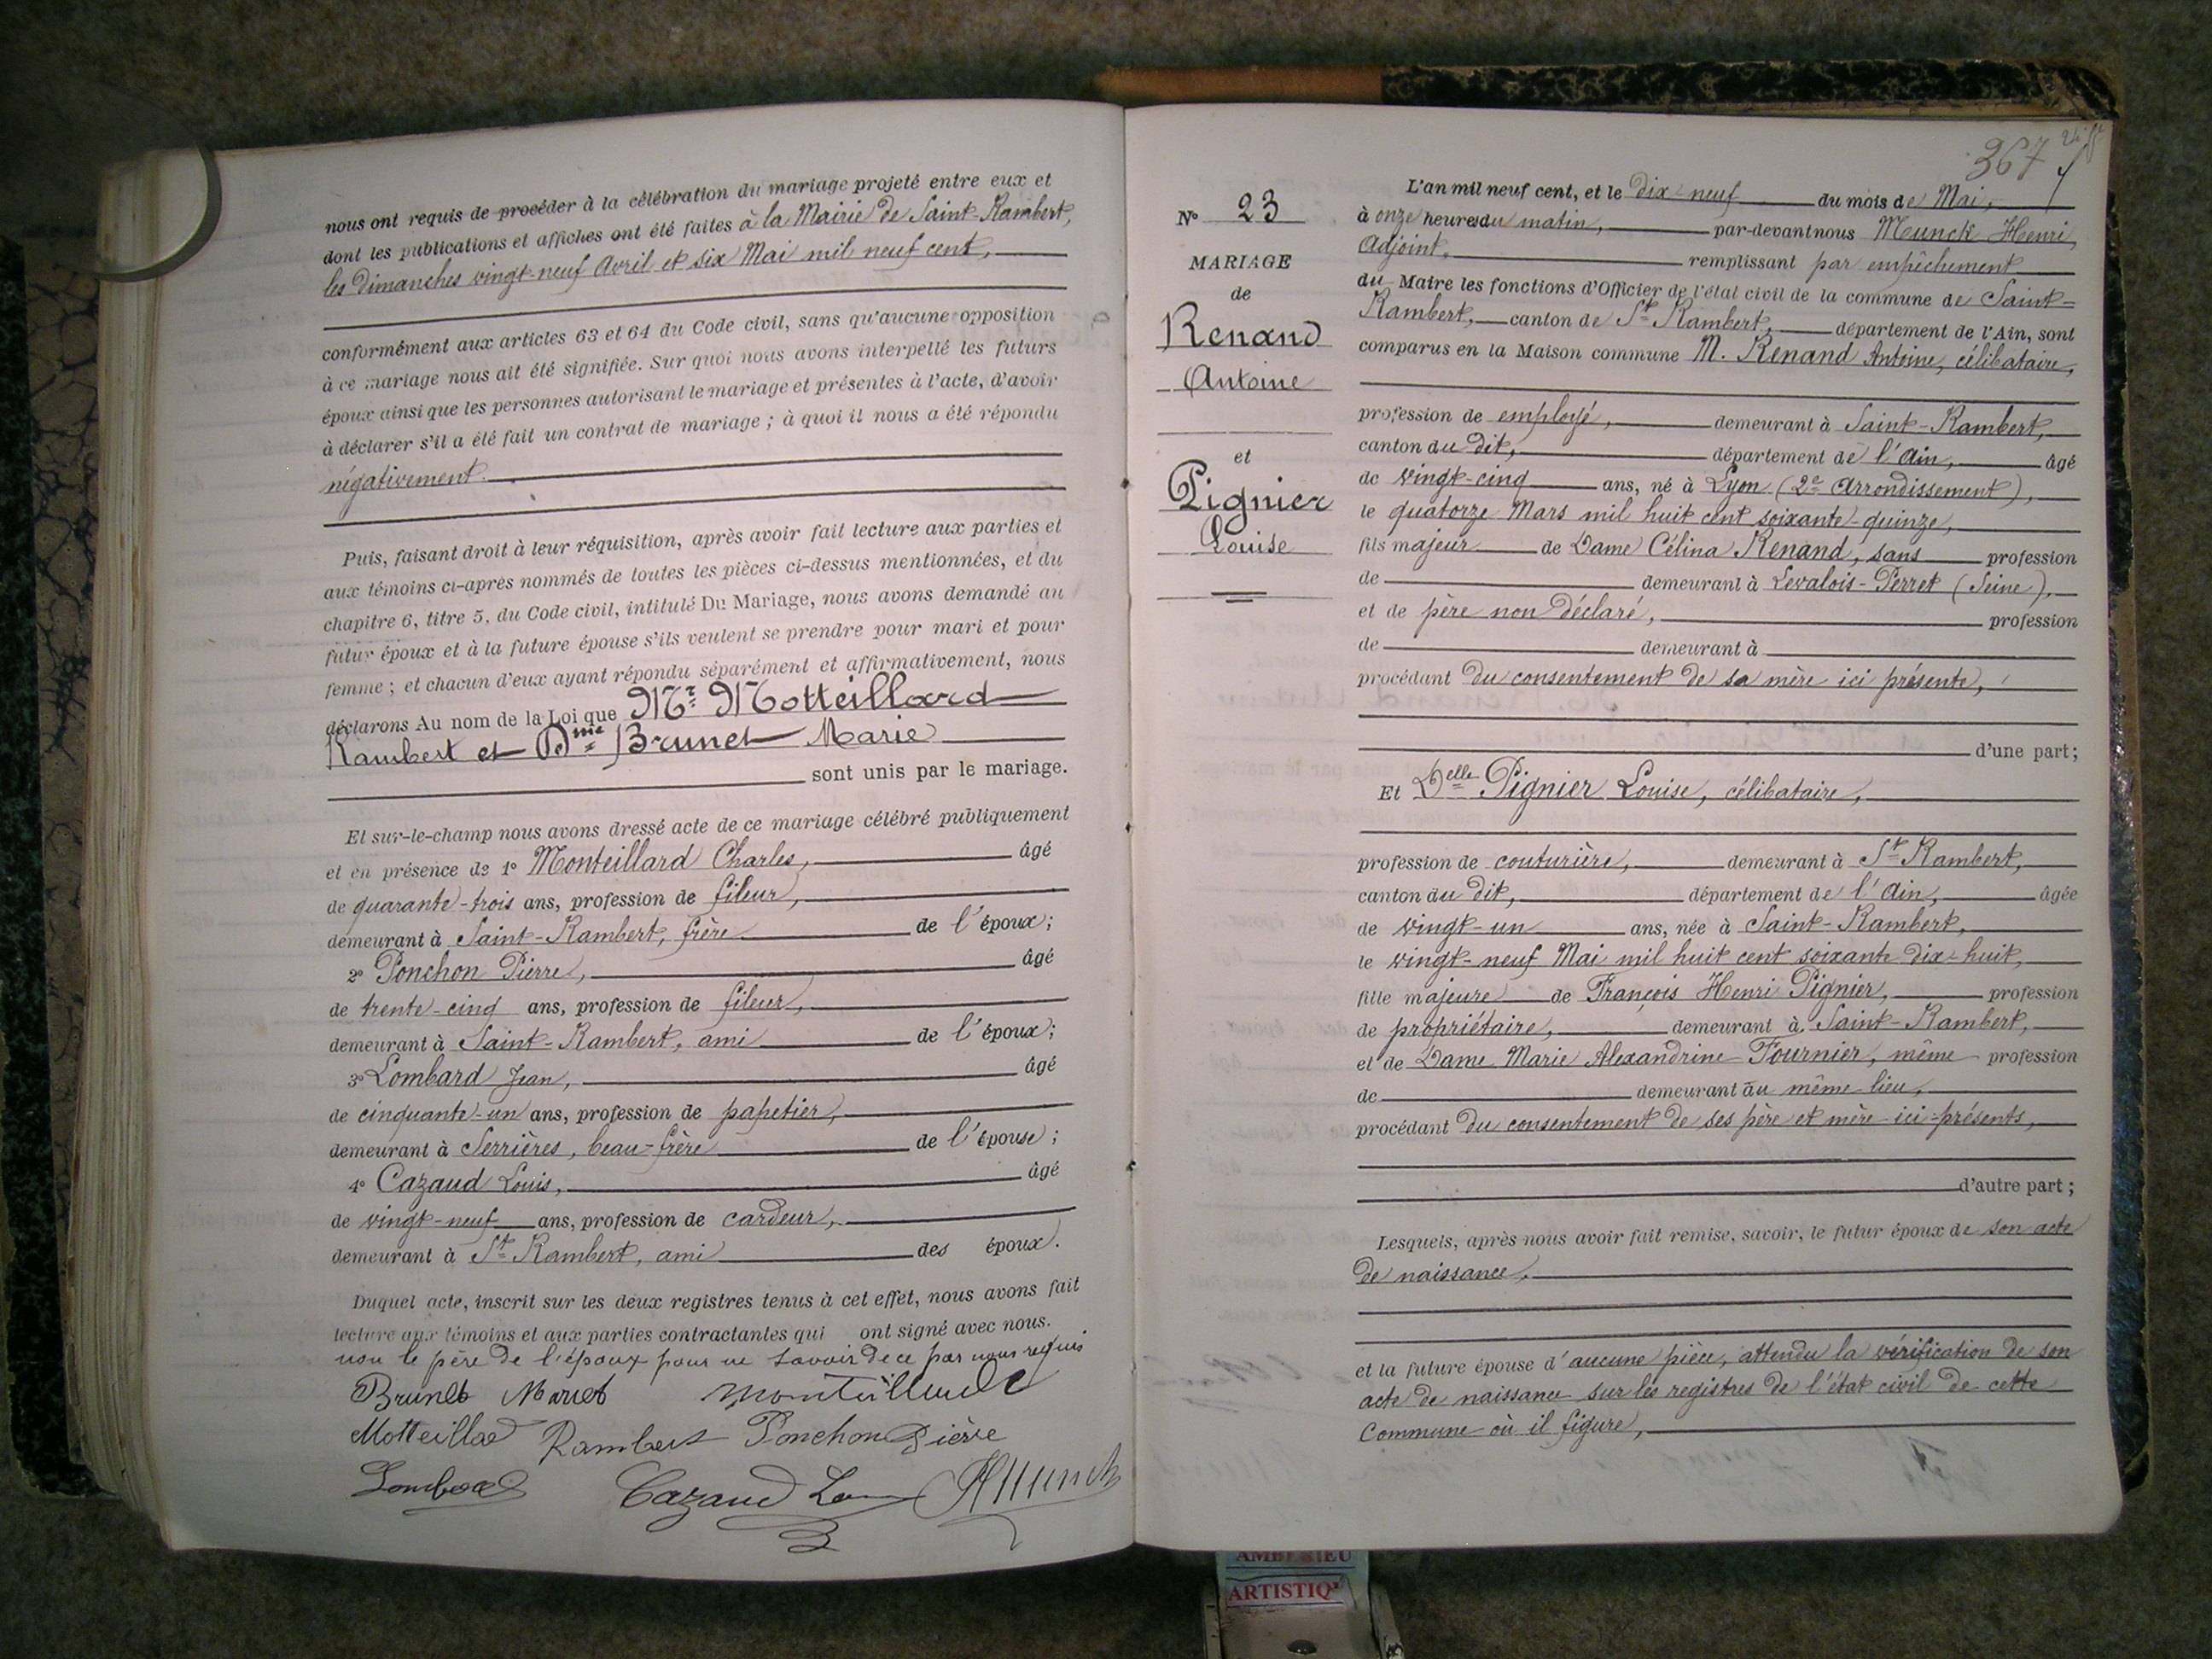 nous ont requis de procéder à la célébration du mariage projeté entre eux et
dont les publications et affiches ont été faites à la Mairie de Saint-Rambert,
les dimanches vingt-neuf Avril et six Mai mil neuf cent,
conformément aux articles 63 et 64 du Code civil, sans qu'aucune opposition
à ce mariage nous ait été signifiée. Sur quoi nous avons interpellé les futurs
époux ainsi que les personnes autorisant le mariage et présentes à l'acte, d'avoir
à déclarer s'il a été fait un contrat de mariage ; à quoi il nous a été répondu
négativement.
Puis, faisant droit à leur réquisition, après avoir fait lecture aux parties et
aux témoins ci-après nommés de toutes les pièces ci-dessus mentionnées, et du
chapitre 6, titre 5, du Code civil, intitulé Du Mariage, nous avons demandé au
futur époux et à la future épouse s'ils veulent se prendre pour mari et pour
femme ; et chacun d'eux ayant répondu séparément et affirmativement, nous
déclarons Au nom de la Loi que Mr Motteillard
Rambert et Dme Brunet Marie
sont unis par le mariage.
Et sur-le-champ nous avons dressé acte de ce mariage célébré publiquement
et en présence de 1° Monteillard Charles, âgé
de quarante-trois ans, profession de fileur,
demeurant à Saint-Rambert, frère de l'époux ;
2° Ponchon Pierre, âgé
de trente-cinq ans, profession de fileur,
demeurant à Saint-Rambert, ami de l'époux ;
3° Lombard Jean, âgé
de cinquante-un ans, profession de papetier,
demeurant à Serrières, beau-frère de l'épouse ;
4° Cazaud Louis, âgé
de vingt-neuf ans, profession de cardeur,
demeurant à St Rambert, ami des époux.
Duquel acte, inscrit sur les deux registres tenus à cet effet, nous avons fait
lecture aux témoins et aux parties contractantes qui ont signé avec nous.
non le père de l'époux pour ne savoir de ce par nous requis
Brunet Mariet Monteillard
Motteillad Rambert Ponchon Pièrre
Lombard Cazaud Lo HMunck
367
N° 23
MARIAGE
de
Renand
Antoine
et
Pignier
Louise
L'an mil neuf cent, et le dix-neuf du mois de Mai,
à onze heures du matin, par-devant nous Munck Henri,
Adjoint, remplissant par empêchement
du Maire les fonctions d'Officier de l'état civil de la commune de Saint-
Rambert, canton de St Rambert, département de l'Ain, sont
comparus en la Maison commune M. Renand Antoine, célibataire,
profession de employé, demeurant à Saint-Rambert,
canton du dit, département de l'Ain, âgé
de vingt-cinq ans, né à Lyon (2e Arrondissement),
le quatorze Mars mil huit cent soixante-quinze,
fils majeur de Dame Célina Renand, sans profession
de demeurant à Levalois-Perret (Seine),
et de père non déclaré, profession
de demeurant à
procédant du consentement de sa mère ici présente,
d'une part ;
Et Delle Pignier Louise, célibataire,
profession de couturière, demeurant à St Rambert,
canton du dit, département de l'Ain, âgée
de vingt-un ans, née à Saint-Rambert,
le vingt-neuf Mai mil huit cent soixante dix-huit,
fille majeure de François Henri Pignier, profession
de propriétaire, demeurant à Saint-Rambert,
et de Dame Marie Alexandrine Fournier, même profession
de demeurant au même lieu,
procédant du consentement de ses père et mère ici-présents,
d'autre part ;
Lesquels, après nous avoir fait remise, savoir, le futur époux de son acte
de naissance,
et la future épouse d'aucune pièce, attendu la vérification de son
acte de naissance sur les registres de l'état civil de cette
Commune où il figure,
AMBERIEU
ARTISTIQ